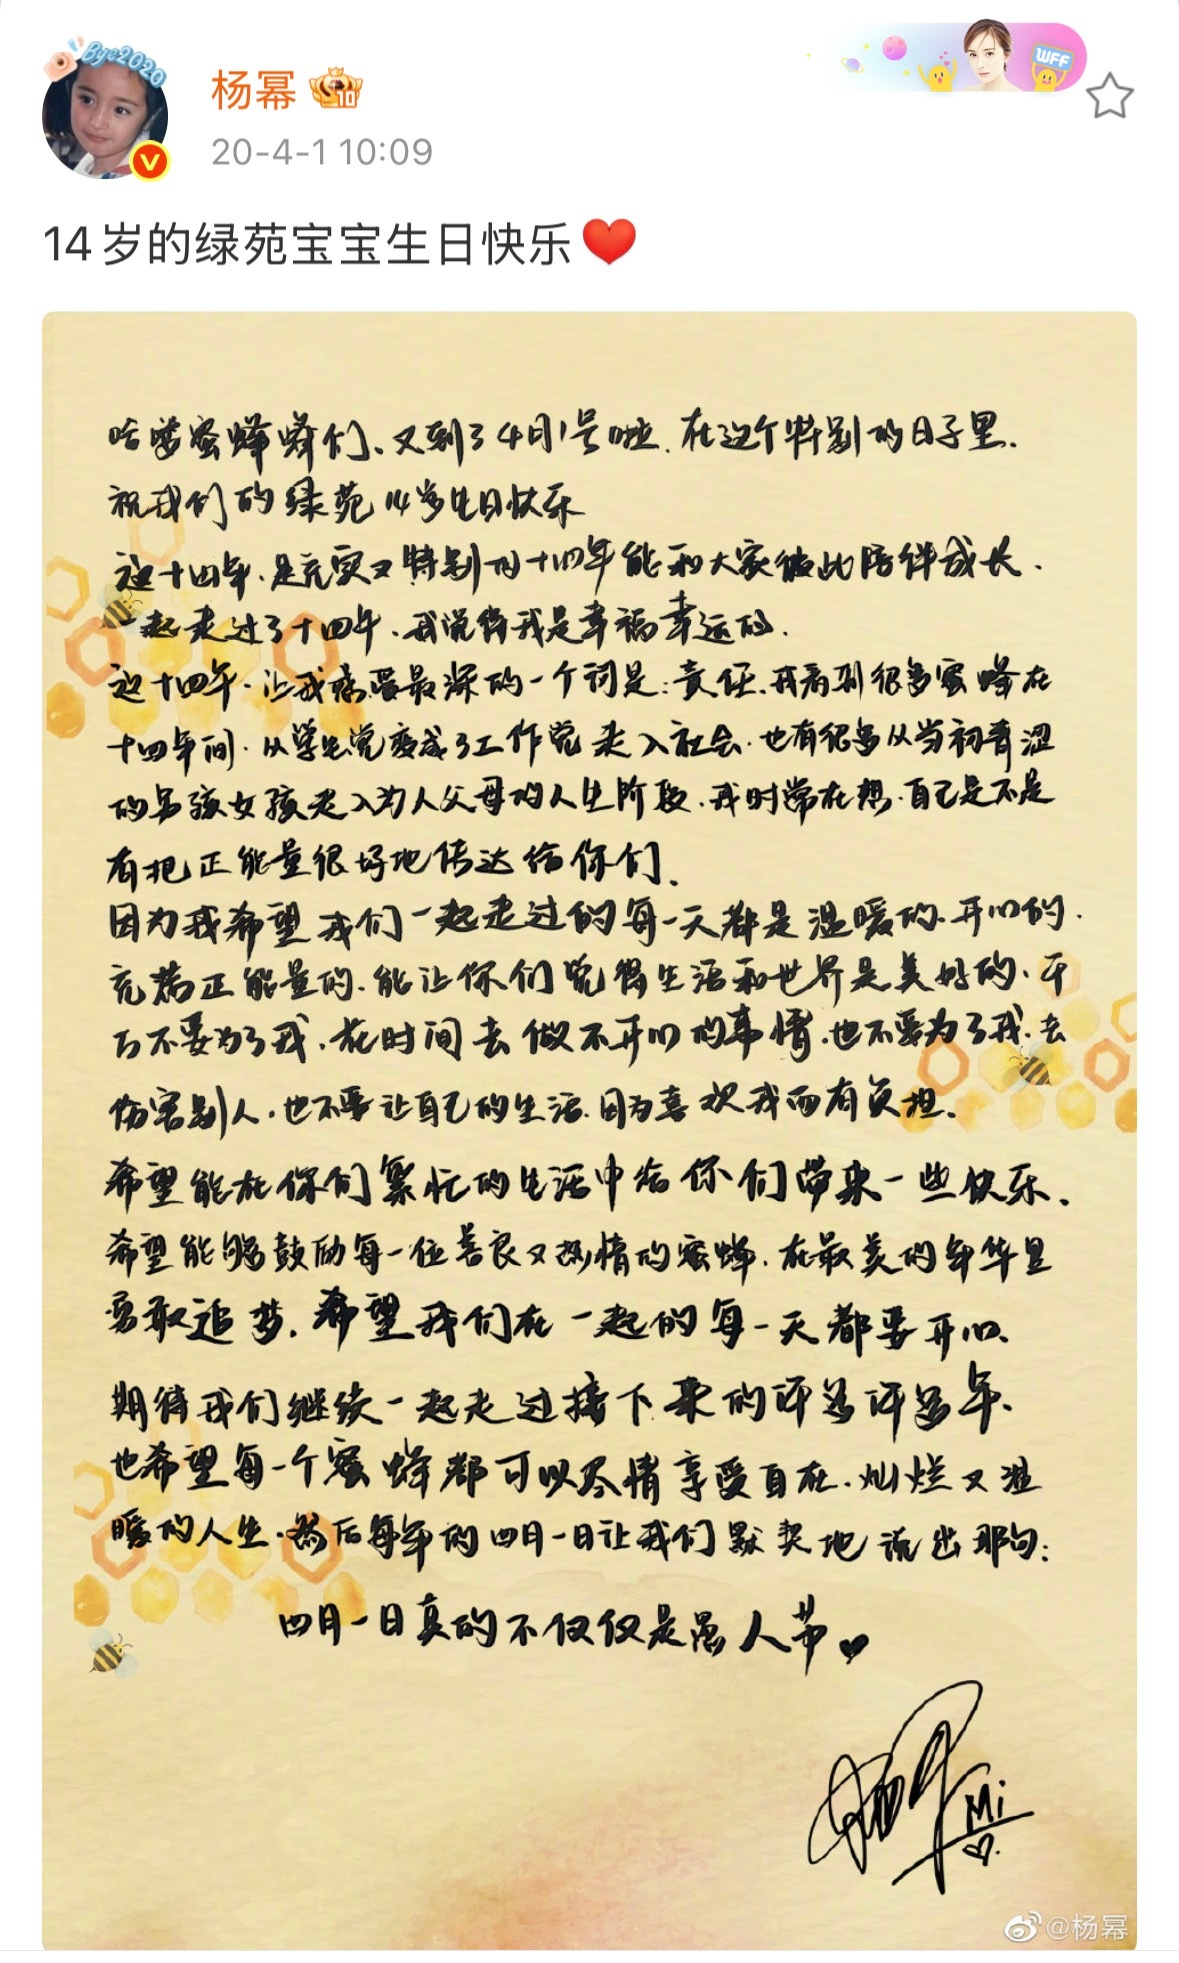 Bye2020
杨幂
WFF
20-4-1 10:09
14岁的绿苑宝宝生日快乐
哈喽蜜蜂蜂们、又到了4月1号啦.在这个特别的日子里.
祝我们的绿苑14岁生日快乐
这十四年.是充实又特别的十四年能和大家彼此陪伴成长.
一起走过了十四年.我觉得我是幸福幸运的.
这十四年.让我感受最深的一个词是:责任.我看到很多蜜蜂在
十四年间.从学生党变成了工作党走入社会.也有很多从当初青涩
的男孩女孩走入为人父母的人生阶段.我时常在想.自己是不是
有把正能量很好地传达给你们.
因为我希望我们一起走过的每一天都是温暖的.开心的.
充满正能量的.能让你们觉得生活和世界是美好的.千
万不要为了我.花时间去做不开心的事情.也不要为了我.去
伤害别人.也不要让自己的生活.因为喜欢我而有负担.
希望能在你们繁忙的生活中给你们带来一些快乐.
希望能够鼓励每一位善良又热情的蜜蜂.在最美的年华里
勇敢追梦.希望我们在一起的每一天都要开心.
期待我们继续一起走过接下来的许多许多年.
也希望每一个蜜蜂都可以尽情享受自在.灿烂又温
暖的人生.然后每年的四月一日让我们默契地说出那句:
四月一日真的不仅仅是愚人节
杨幂
Mi
@杨幂